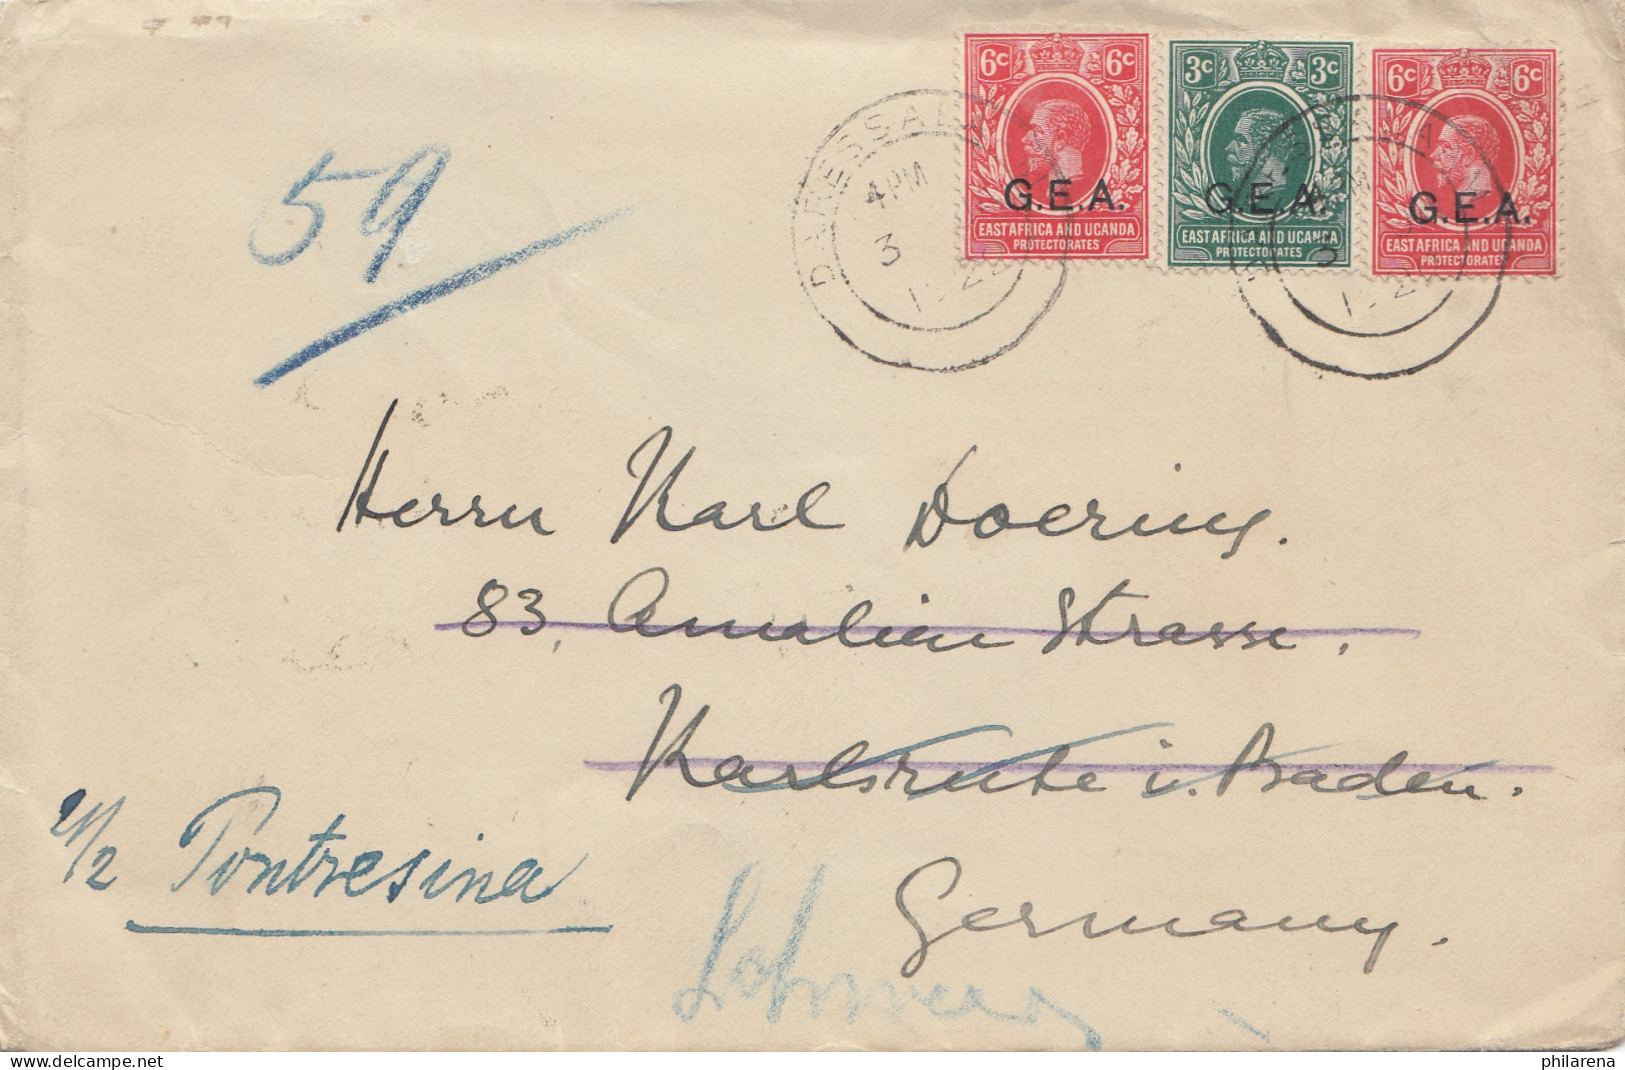 6c 6c
G.E.A.
EAST AFRICA AND UGANDA
PROTECTORATES
3c 3c
G.E.A.
EAST AFRICA AND UGANDA
PROTECTORATES
6c 6c
G.E.A.
EAST AFRICA AND UGANDA
PROTECTORATES
DARESSALA
4 PM
3
59
Herrn Karl Doering.
83, Amalien Strasse,
Karlsruhe i. Baden.
Germany.
Pontresina
philarena